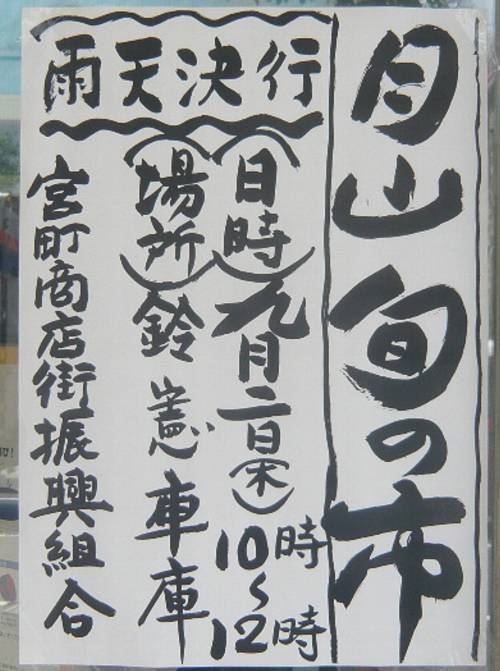 月山旬の市
雨天決行
(日時)九月二日(木)10時~12時
(場所)鈴憲車庫
宮町商店街振興組合